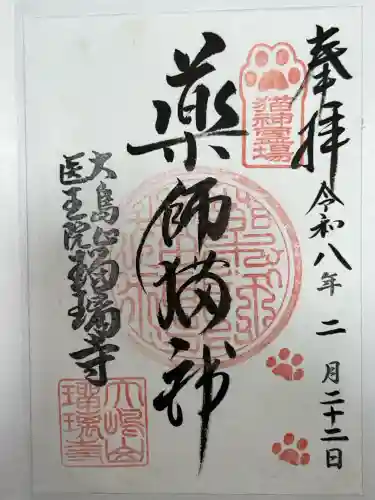 奉拝
令和八年 二月二十二日
猫神霊場
薬師猫神
大島山
医王院瑠璃寺
大嶋山
瑠璃寺